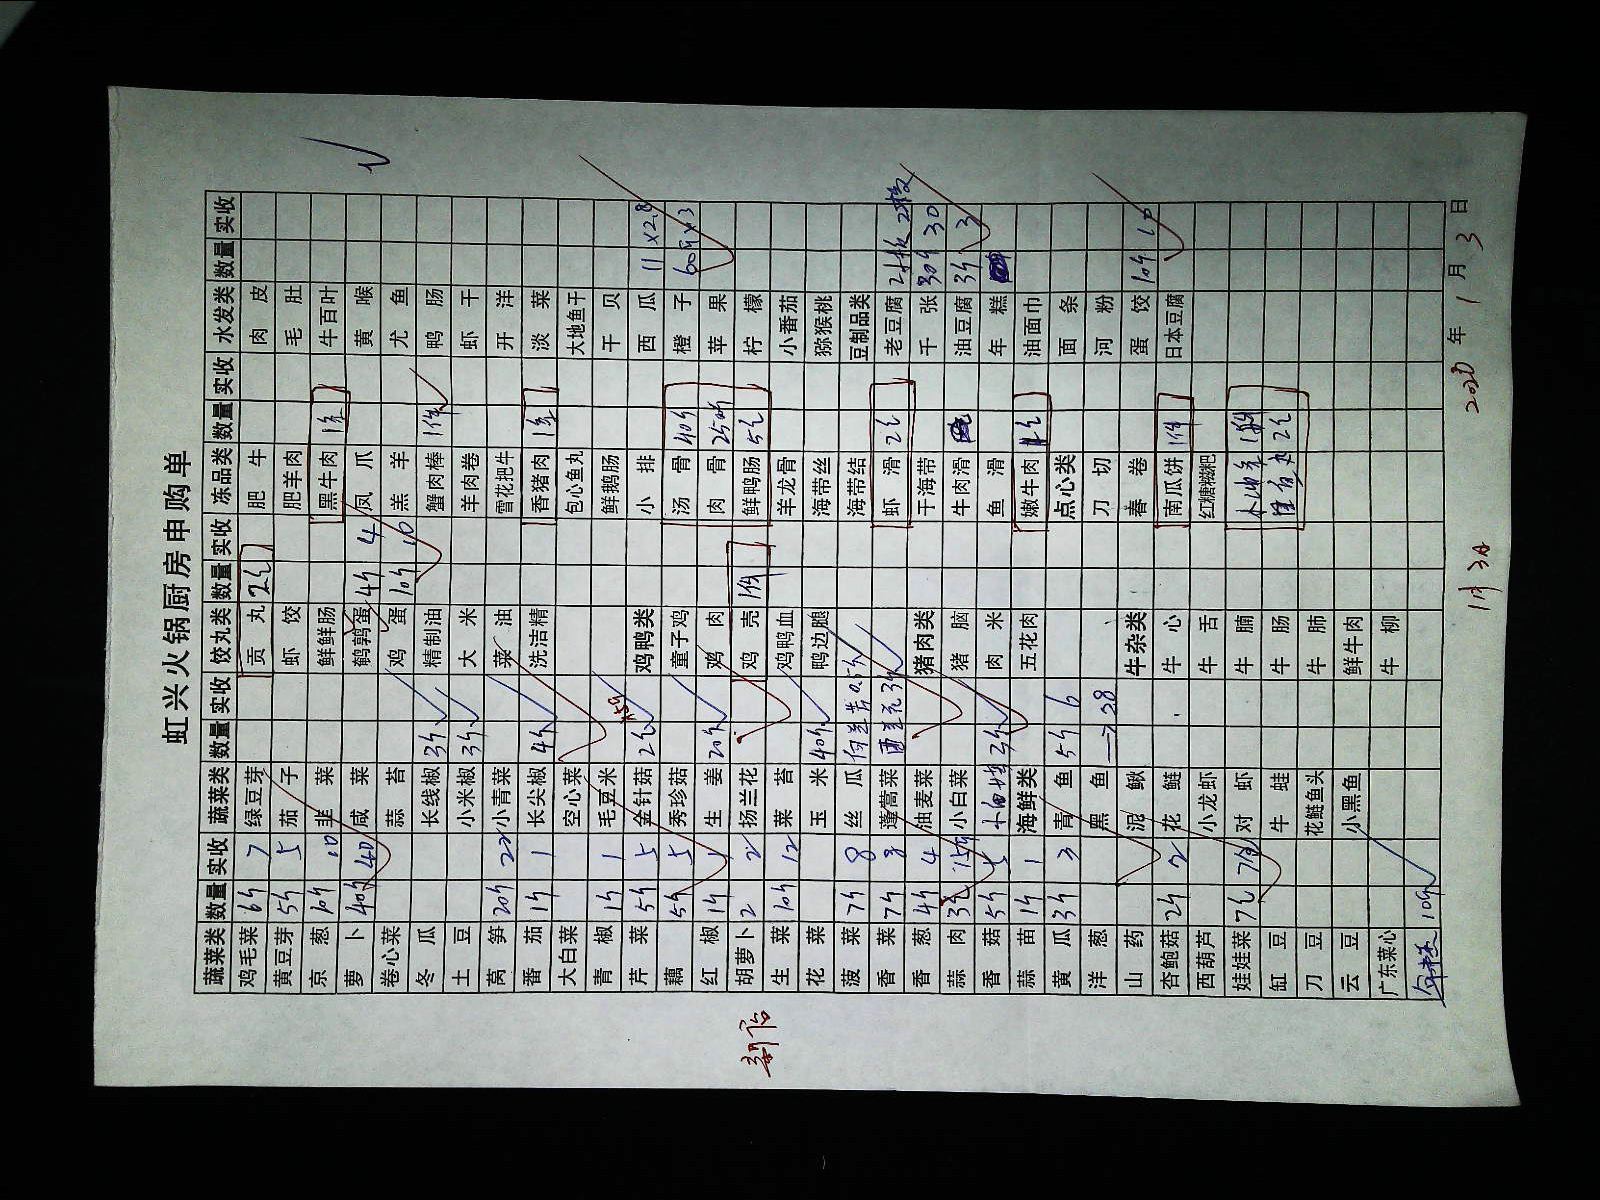 虹兴火锅厨房申购单
蔬菜类 数量 实收 蔬菜类 数量 实收 饺丸类 数量 实收 冻品类 数量 实收 水发类 数量 实收
鸡毛菜 6斤 7 绿豆芽 贡丸 2包 肥牛 肉皮
黄豆芽 5斤 5 茄子 虾饺 肥羊肉 毛肚
京葱 10斤 10 韭菜 鲜鲜肠 黑牛肉 1包 牛百叶
萝卜 40斤 40 咸菜 鹌鹑蛋 4斤 4 凤爪 黄喉
卷心菜 蒜苔 鸡蛋 10斤 10 羔羊 尤鱼
冬瓜 长线椒 3斤 精制油 蟹肉棒 1件 鸭肠
土豆 小米椒 3斤 大米 羊肉卷 虾干
莴笋 20斤 22 小青菜 菜油 雪花把牛 开洋
番茄 1斤 1 长尖椒 4斤 洗洁精 香猪肉 1包 淡菜
大白菜 空心菜 包心鱼丸 大地鱼干
青椒 1斤 1 毛豆米 鲜鹅肠 干贝
芹菜 5斤 5 金针菇 2包 鸡鸭类 小排 西瓜 11 x2.8
藕 5斤 5 秀珍菇 童子鸡 汤骨 40斤 橙子 60斤 x3
红椒 1斤 1 生姜 20斤 鸡肉 肉骨 25斤 苹果
胡萝卜 2 2 扬兰花 鸡壳 1件 鲜鸭肠 5包 柠檬
生菜 10斤 12 菜苔 鸡鸭血 羊龙骨 小番茄
花菜 玉米 40斤 鸭边腿 海带丝 猕猴桃
菠菜 7斤 8 丝瓜 海带结 豆制品类
香菜 7斤 8 蓬蒿菜 3斤 虾滑 2包 老豆腐 2板 2板
香葱 4斤 4 油麦菜 猪肉类 干海带 千张 30斤 30
蒜肉 3包 15斤 小白菜 猪脑 牛肉滑 油豆腐 3斤 3
香菇 5斤 5 3斤 肉米 鱼滑 年糕
蒜苗 1斤 1 海鲜类 五花肉 嫩牛肉 油面巾
黄瓜 3斤 3 青鱼 5斤 6 点心类 面条
洋葱 黑鱼 28 刀切 河粉
山药 泥鳅 牛杂类 春卷 蛋饺 10斤 10
杏鲍菇 2斤 2 花鲢 牛心 南瓜饼 1件 日本豆腐
西葫芦 小龙虾 牛舌 红糖糍粑
娃娃菜 7包 对虾 牛腩 1件
缸豆 牛蛙 牛肠 2包
刀豆 花鲢鱼头 牛肺
云豆 小黑鱼 鲜牛肉
广东菜心 牛柳
10斤
1月3日 2020年1月3日